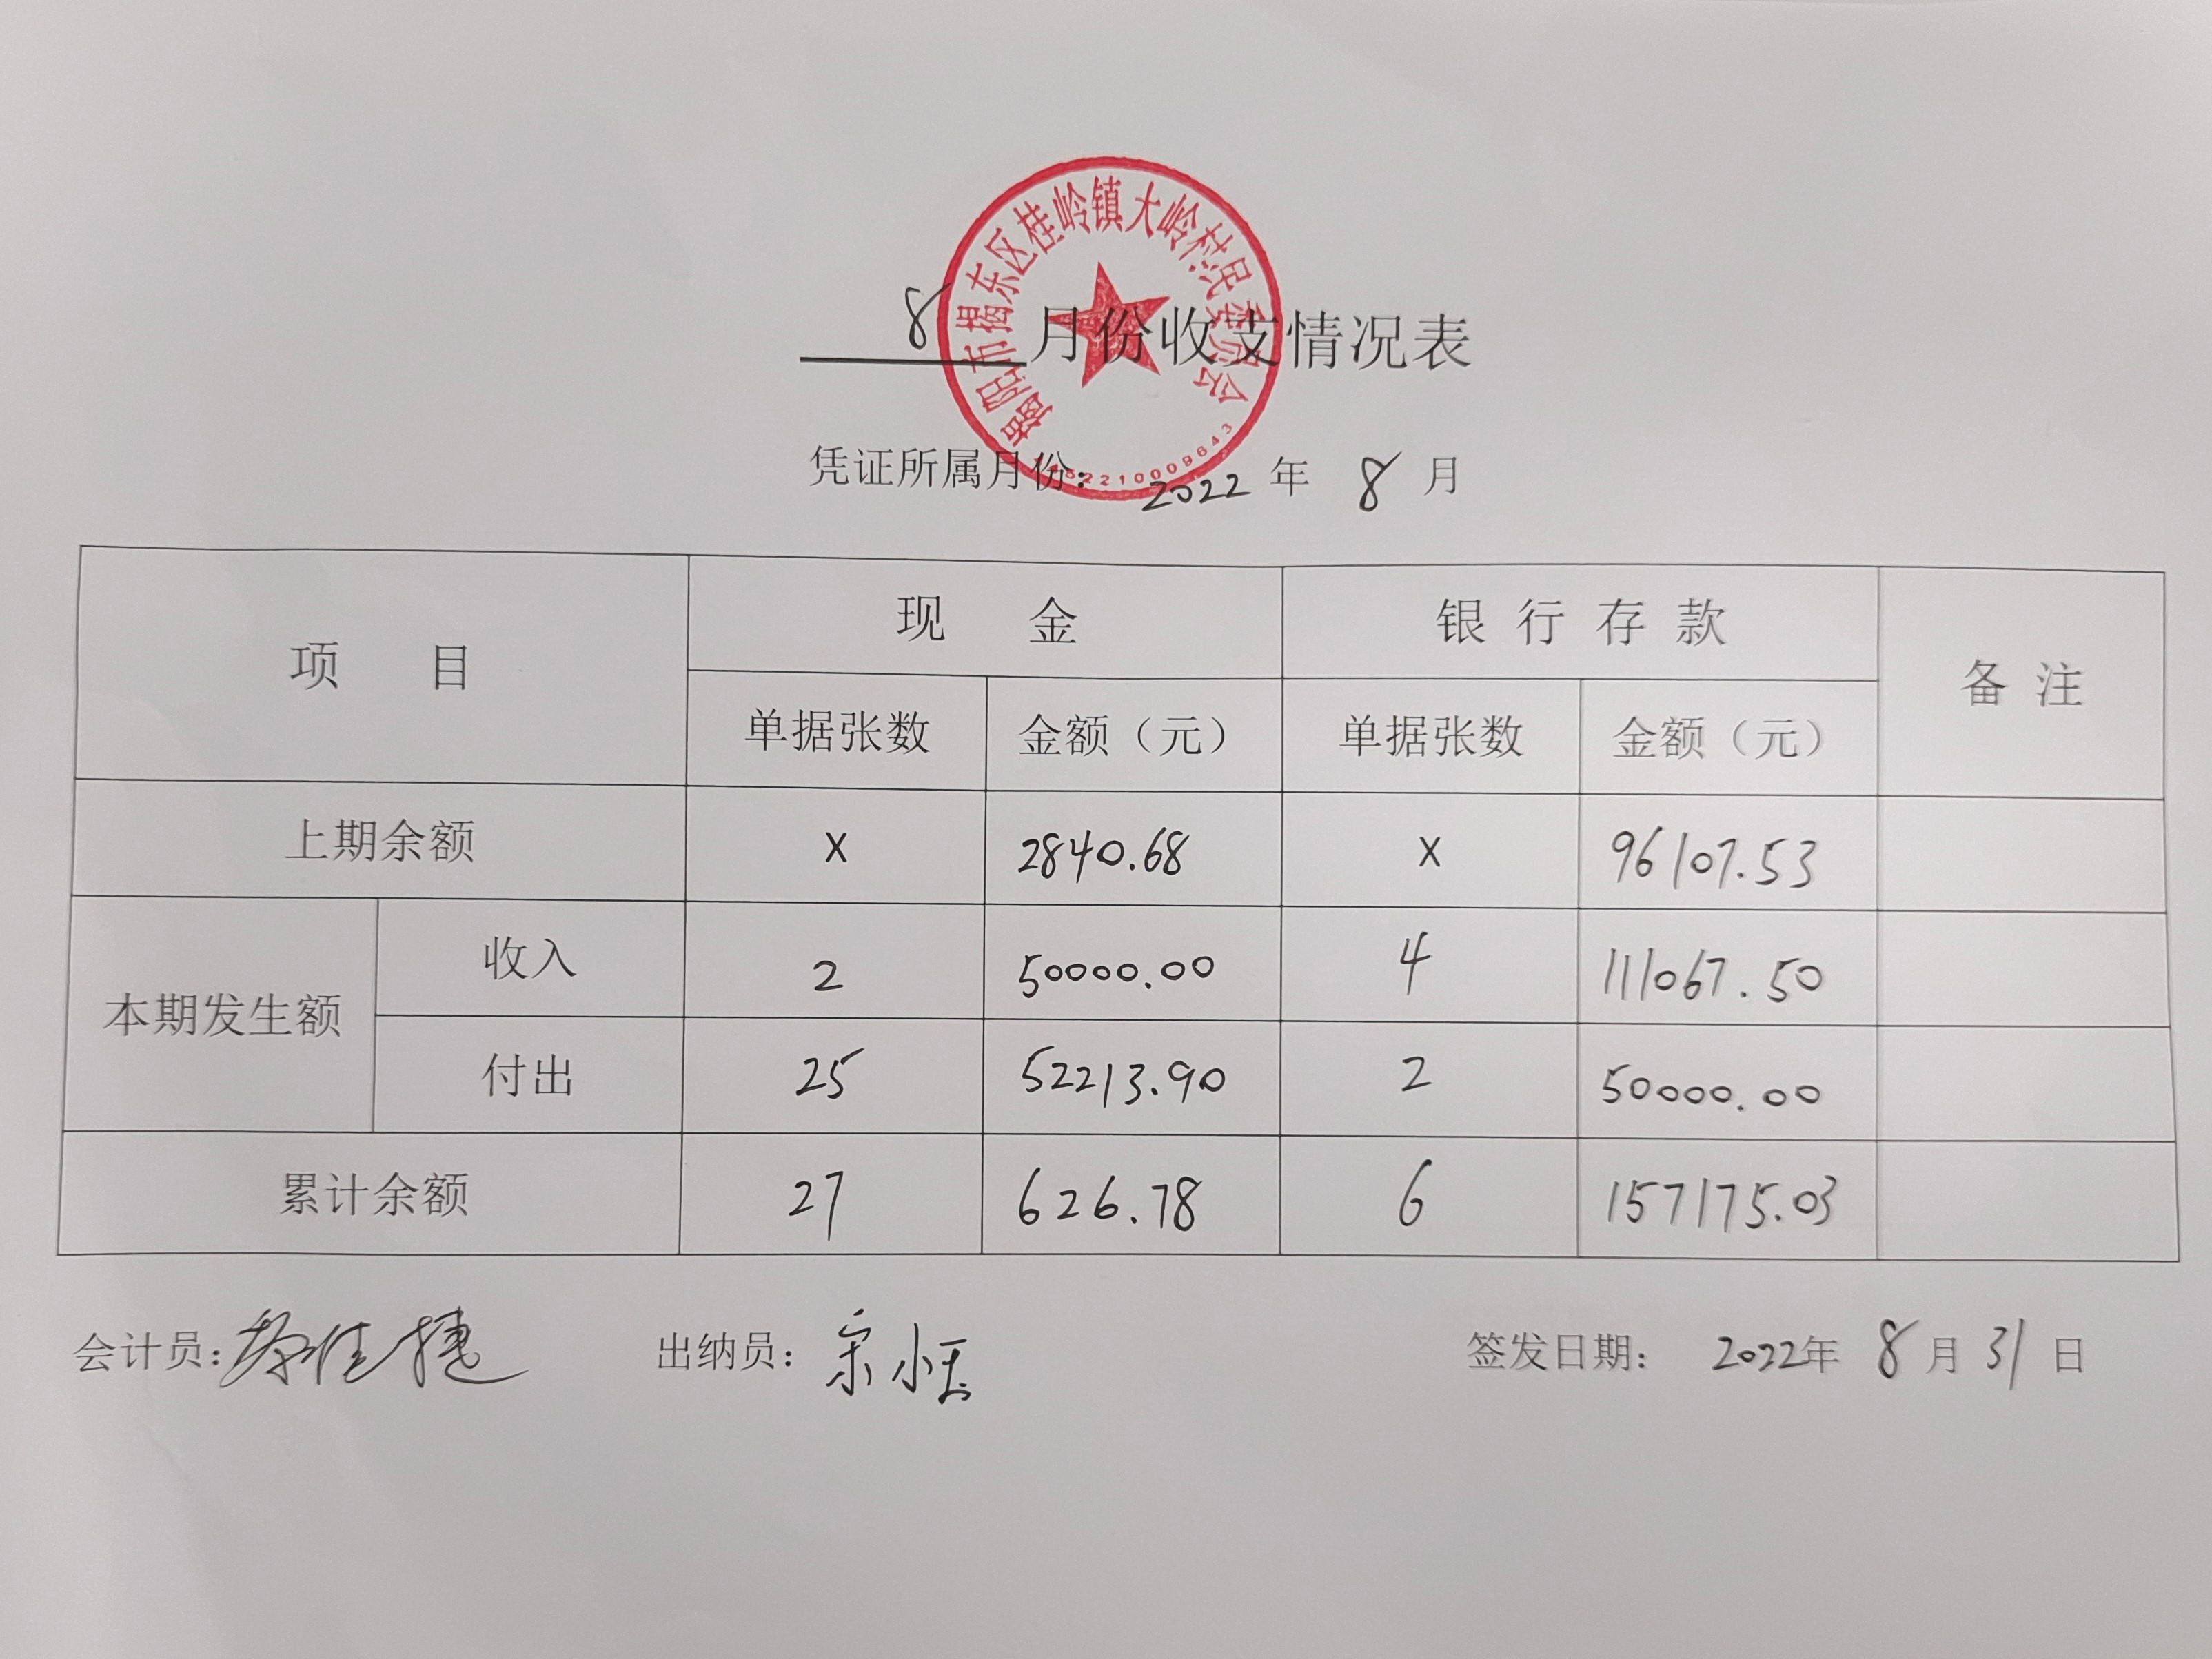 揭阳市揭东区桂岭镇大岭村民委员会
8 月份收支情况表
凭证所属月份: 2022 年 8 月
项 目 现 金 银 行 存 款 备 注
单据张数 金额（元） 单据张数 金额（元）
上期余额 X 2840.68 X 96107.53
本期发生额 收入 2 50000.00 4 111067.50
付出 25 52213.90 2 50000.00
累计余额 27 626.78 6 157175.03
会计员: 出纳员: 签发日期: 2022年 8 月 31 日